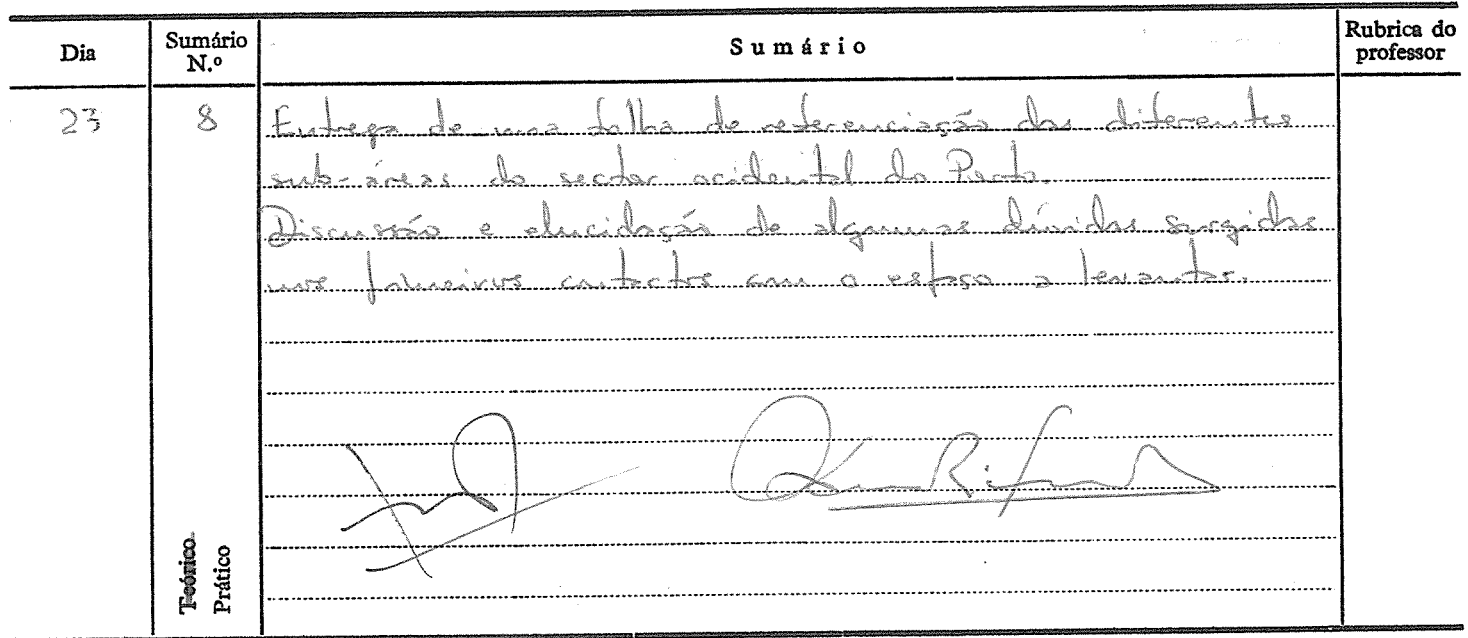 Dia
Sumário N.º
Sumário
Rubrica do professor
23
8
Entrega de uma folha de referenciação das diferentes
sub-áreas do sector ocidental do Porto.
Discussão e elucidação de algumas dúvidas surgidas
nos primeiros contactos com o espaço a levantar.
Teórico
Prático